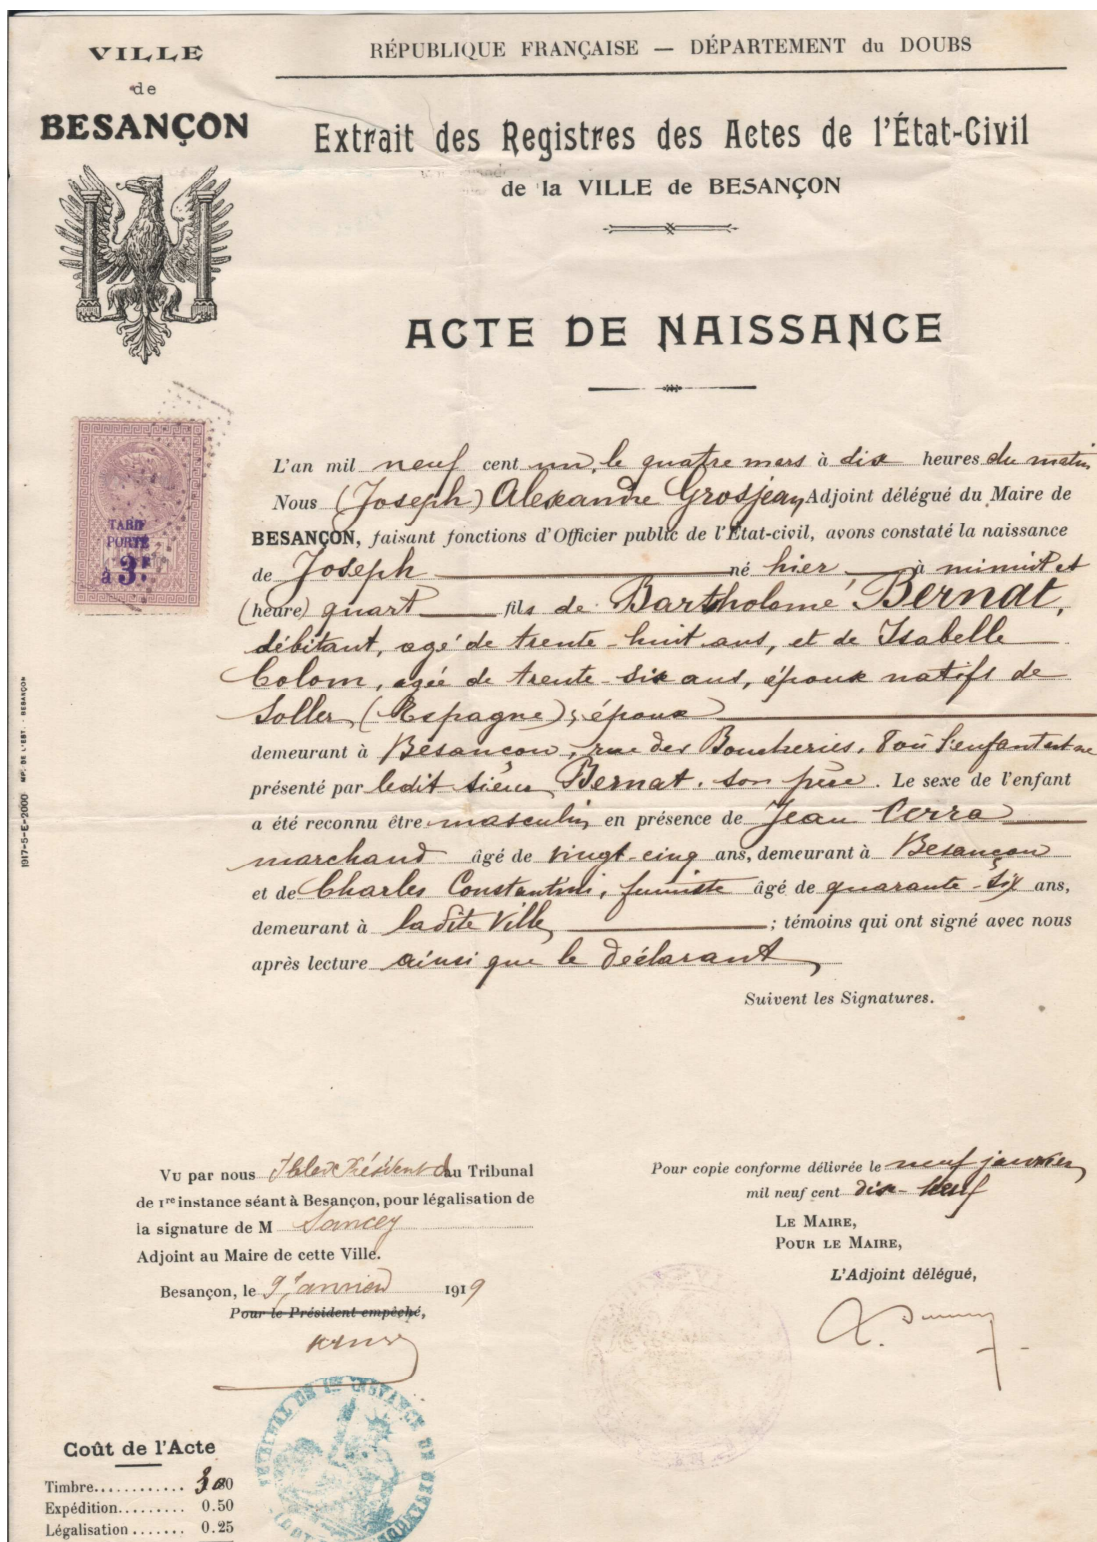 VILLE
de
BESANÇON
RÉPUBLIQUE FRANÇAISE — DÉPARTEMENT du DOUBS
Extrait des Registres des Actes de l'État-Civil
de la VILLE de BESANÇON
ACTE DE NAISSANCE
TARIF
PORTÉ
à 3F
L'an mil neuf cent un, le quatre mars à dix heures du matin
Nous (Joseph) Alexandre Grosjean Adjoint délégué du Maire de
BESANÇON, faisant fonctions d'Officier public de l'État-civil, avons constaté la naissance
de Joseph né hier à minuit et
(heure) quart fils de Bartholomé Bernat,
débitant, agé de trente-huit ans, et de Isabelle
Colom, agée de trente-six ans, époux natifs de
Soller (Espagne); époux
demeurant à Besançon, rue des Boucheries, 8 où l'enfant est né
présenté par ledit sieur Bernat, son père. Le sexe de l'enfant
a été reconnu être masculin en présence de Jean Cerra
marchand âgé de vingt-cinq ans, demeurant à Besançon
et de Charles Constantini, fumiste âgé de quarante-six ans,
demeurant à ladite Ville ; témoins qui ont signé avec nous
après lecture ainsi que le déclarant
Suivent les Signatures.
1917-5-E-2000 IMP. DE L'EST - BESANÇON
Vu par nous Président du Tribunal
de 1re instance séant à Besançon, pour légalisation de
la signature de M Sancey
Adjoint au Maire de cette Ville.
Besançon, le 9 Janvier 1919
Pour le Président empêché,
Pour copie conforme délivrée le neuf janvier
mil neuf cent dix-neuf
LE MAIRE,
POUR LE MAIRE,
L'Adjoint délégué,
TRIBUNAL DE 1re INSTANCE DE BESANÇON
Coût de l'Acte
Timbre............
Expédition......... 0.50
Légalisation....... 0.25